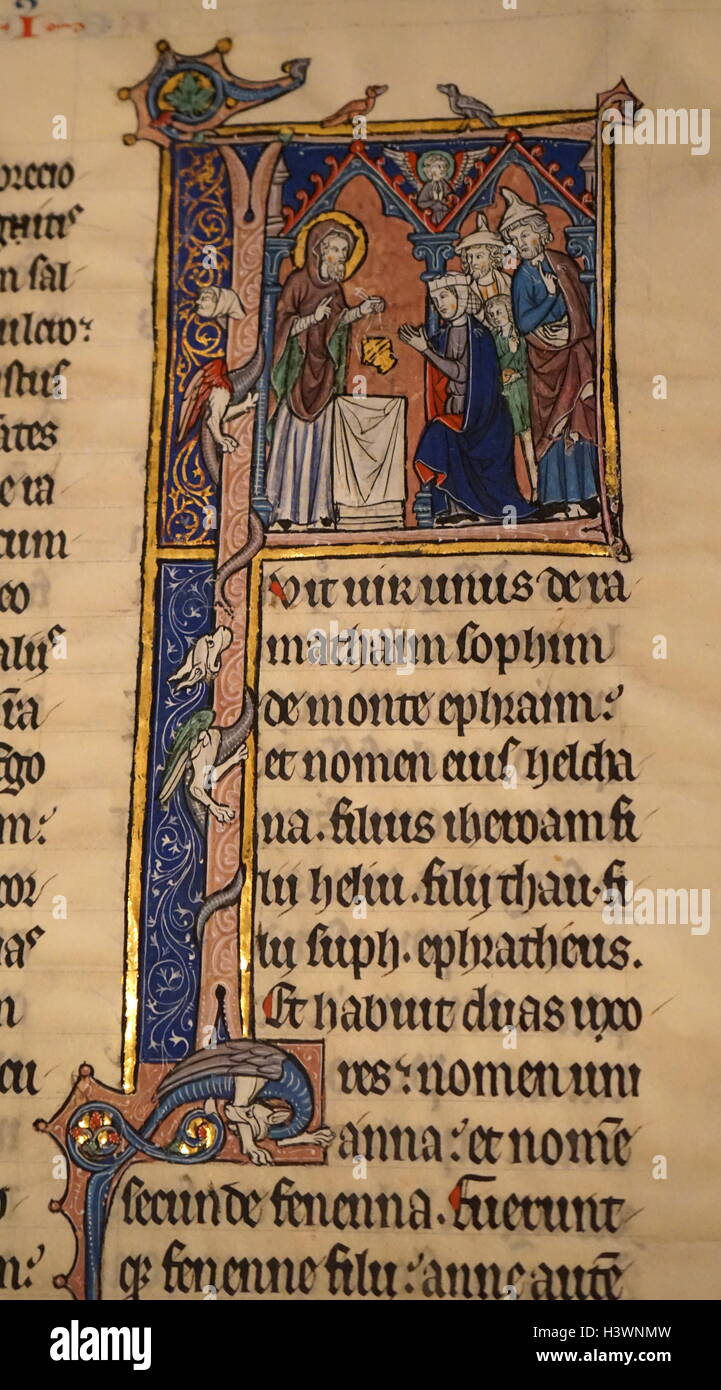 I
precio
sal
e ra
cum
eo
Ego
cor
cu
uit uir unus de ra
mathaim sophim
de monte ephraim:
et nomen eius helcha
na. filius iheroam fi
lij heliu. filij thau. fi
lij suph. ephratheus.
Et habuit duas uxo
res: nomen uni
anna: et nomē
secunde fenenna. Fuerunt
fenenne filii: anne autē
alamy
alamy
Image ID: H3WNMW
www.alamy.com